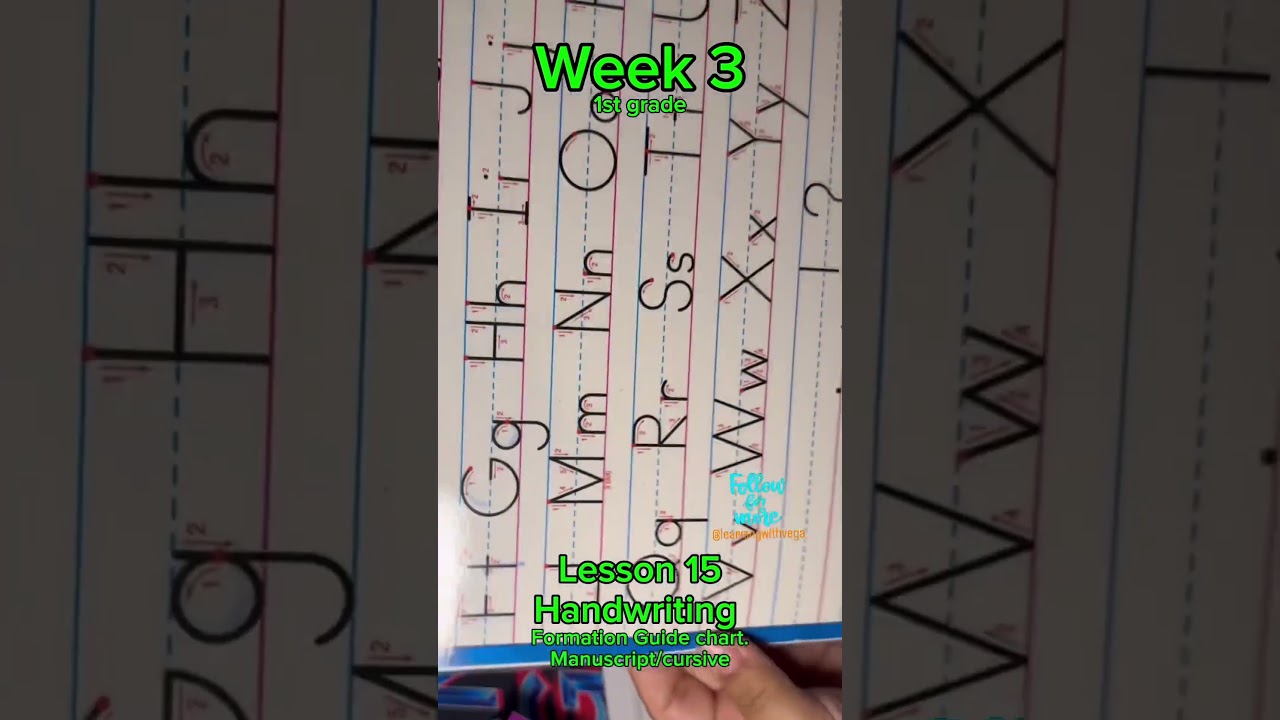 Week 3
1st grade
Gg Hh Ii Jj
Mm Nn Oo
Qq Rr Ss Tt
Vv Ww Xx Yy
?
Follow
for
more
@learningwithvega
Lesson 15
Handwriting
Formation Guide chart.
Manuscript/cursive